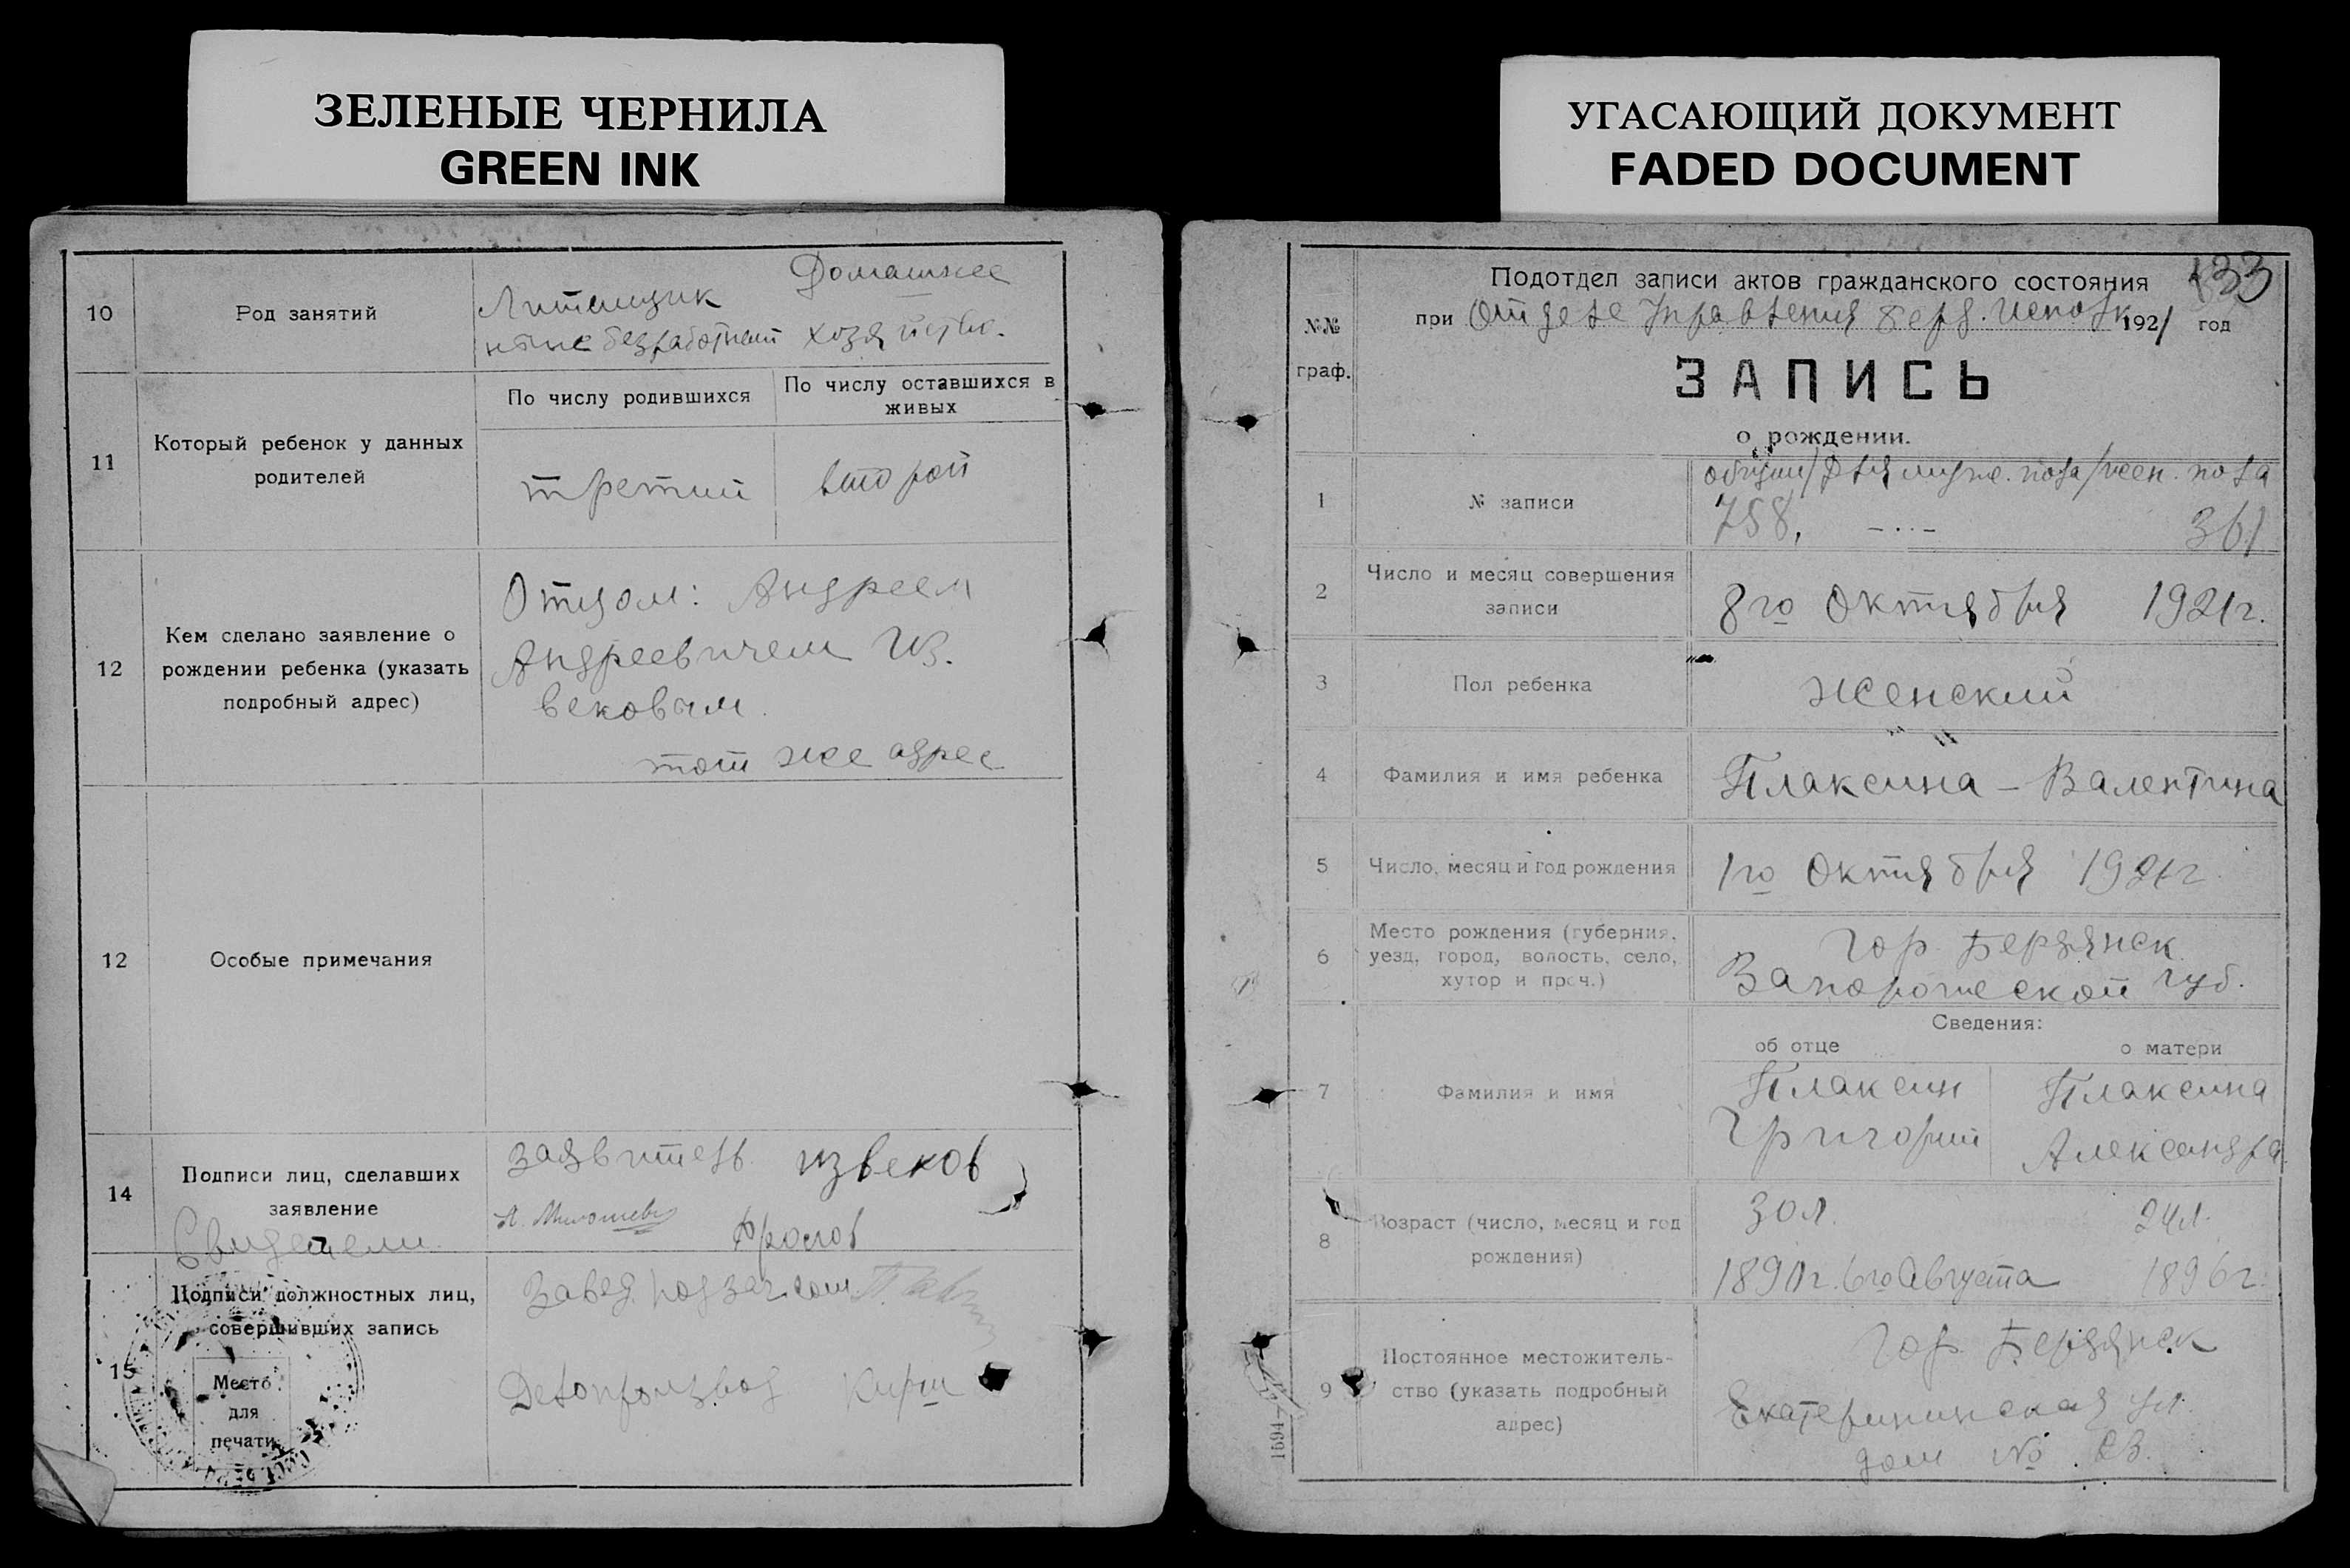 ЗЕЛЕНЫЕ ЧЕРНИЛА
GREEN INK
10
Род занятий
Домашнее
безработный хозяйство.
11
Который ребенок у данных
родителей
По числу родившихся
По числу оставшихся в
живых
третий
второй
12
Кем сделано заявление о
рождении ребенка (указать
подробный адрес)
Отцом: Андреем
Андреевичем Из.
вековым.
тот же адрес
12
Особые примечания
14
Подписи лиц, сделавших
заявление
Свидетели
заявитель извеков
Фролов
15
Подписи должностных лиц,
совершивших запись
Место
для
печати
Завед.
Делопроизвод Кирш
УГАСАЮЩИЙ ДОКУМЕНТ
FADED DOCUMENT
№№
граф.
Подотдел записи актов гражданского состояния
133
при Отделе Управления Берд. Исполк 1921 год
ЗАПИСЬ
о рождении.
1
№ записи
общий/Для муж. пола/жен. пола
758, – · · – 361
2
Число и месяц совершения
записи
8го Октября 1921г.
3
Пол ребенка
Женский
4
Фамилия и имя ребенка
Плаксина – Валентина
5
Число, месяц и год рождения
1го Октября 1921г
6
Место рождения (губерния,
уезд, город, волость, село,
хутор и проч.)
Гор. Бердянск
Запорожской губ.
Сведения:
об отце
о матери
7
Фамилия и имя
Плаксин
Григорий
Плаксина
Александра
8
Возраст (число, месяц и год
рождения)
30л.
24л.
1891г. 6го Августа
1896г.
9
Постоянное местожитель-
ство (указать подробный
адрес)
Гор. Бердянск
Екатерининская ул.
дом № 23.
1594